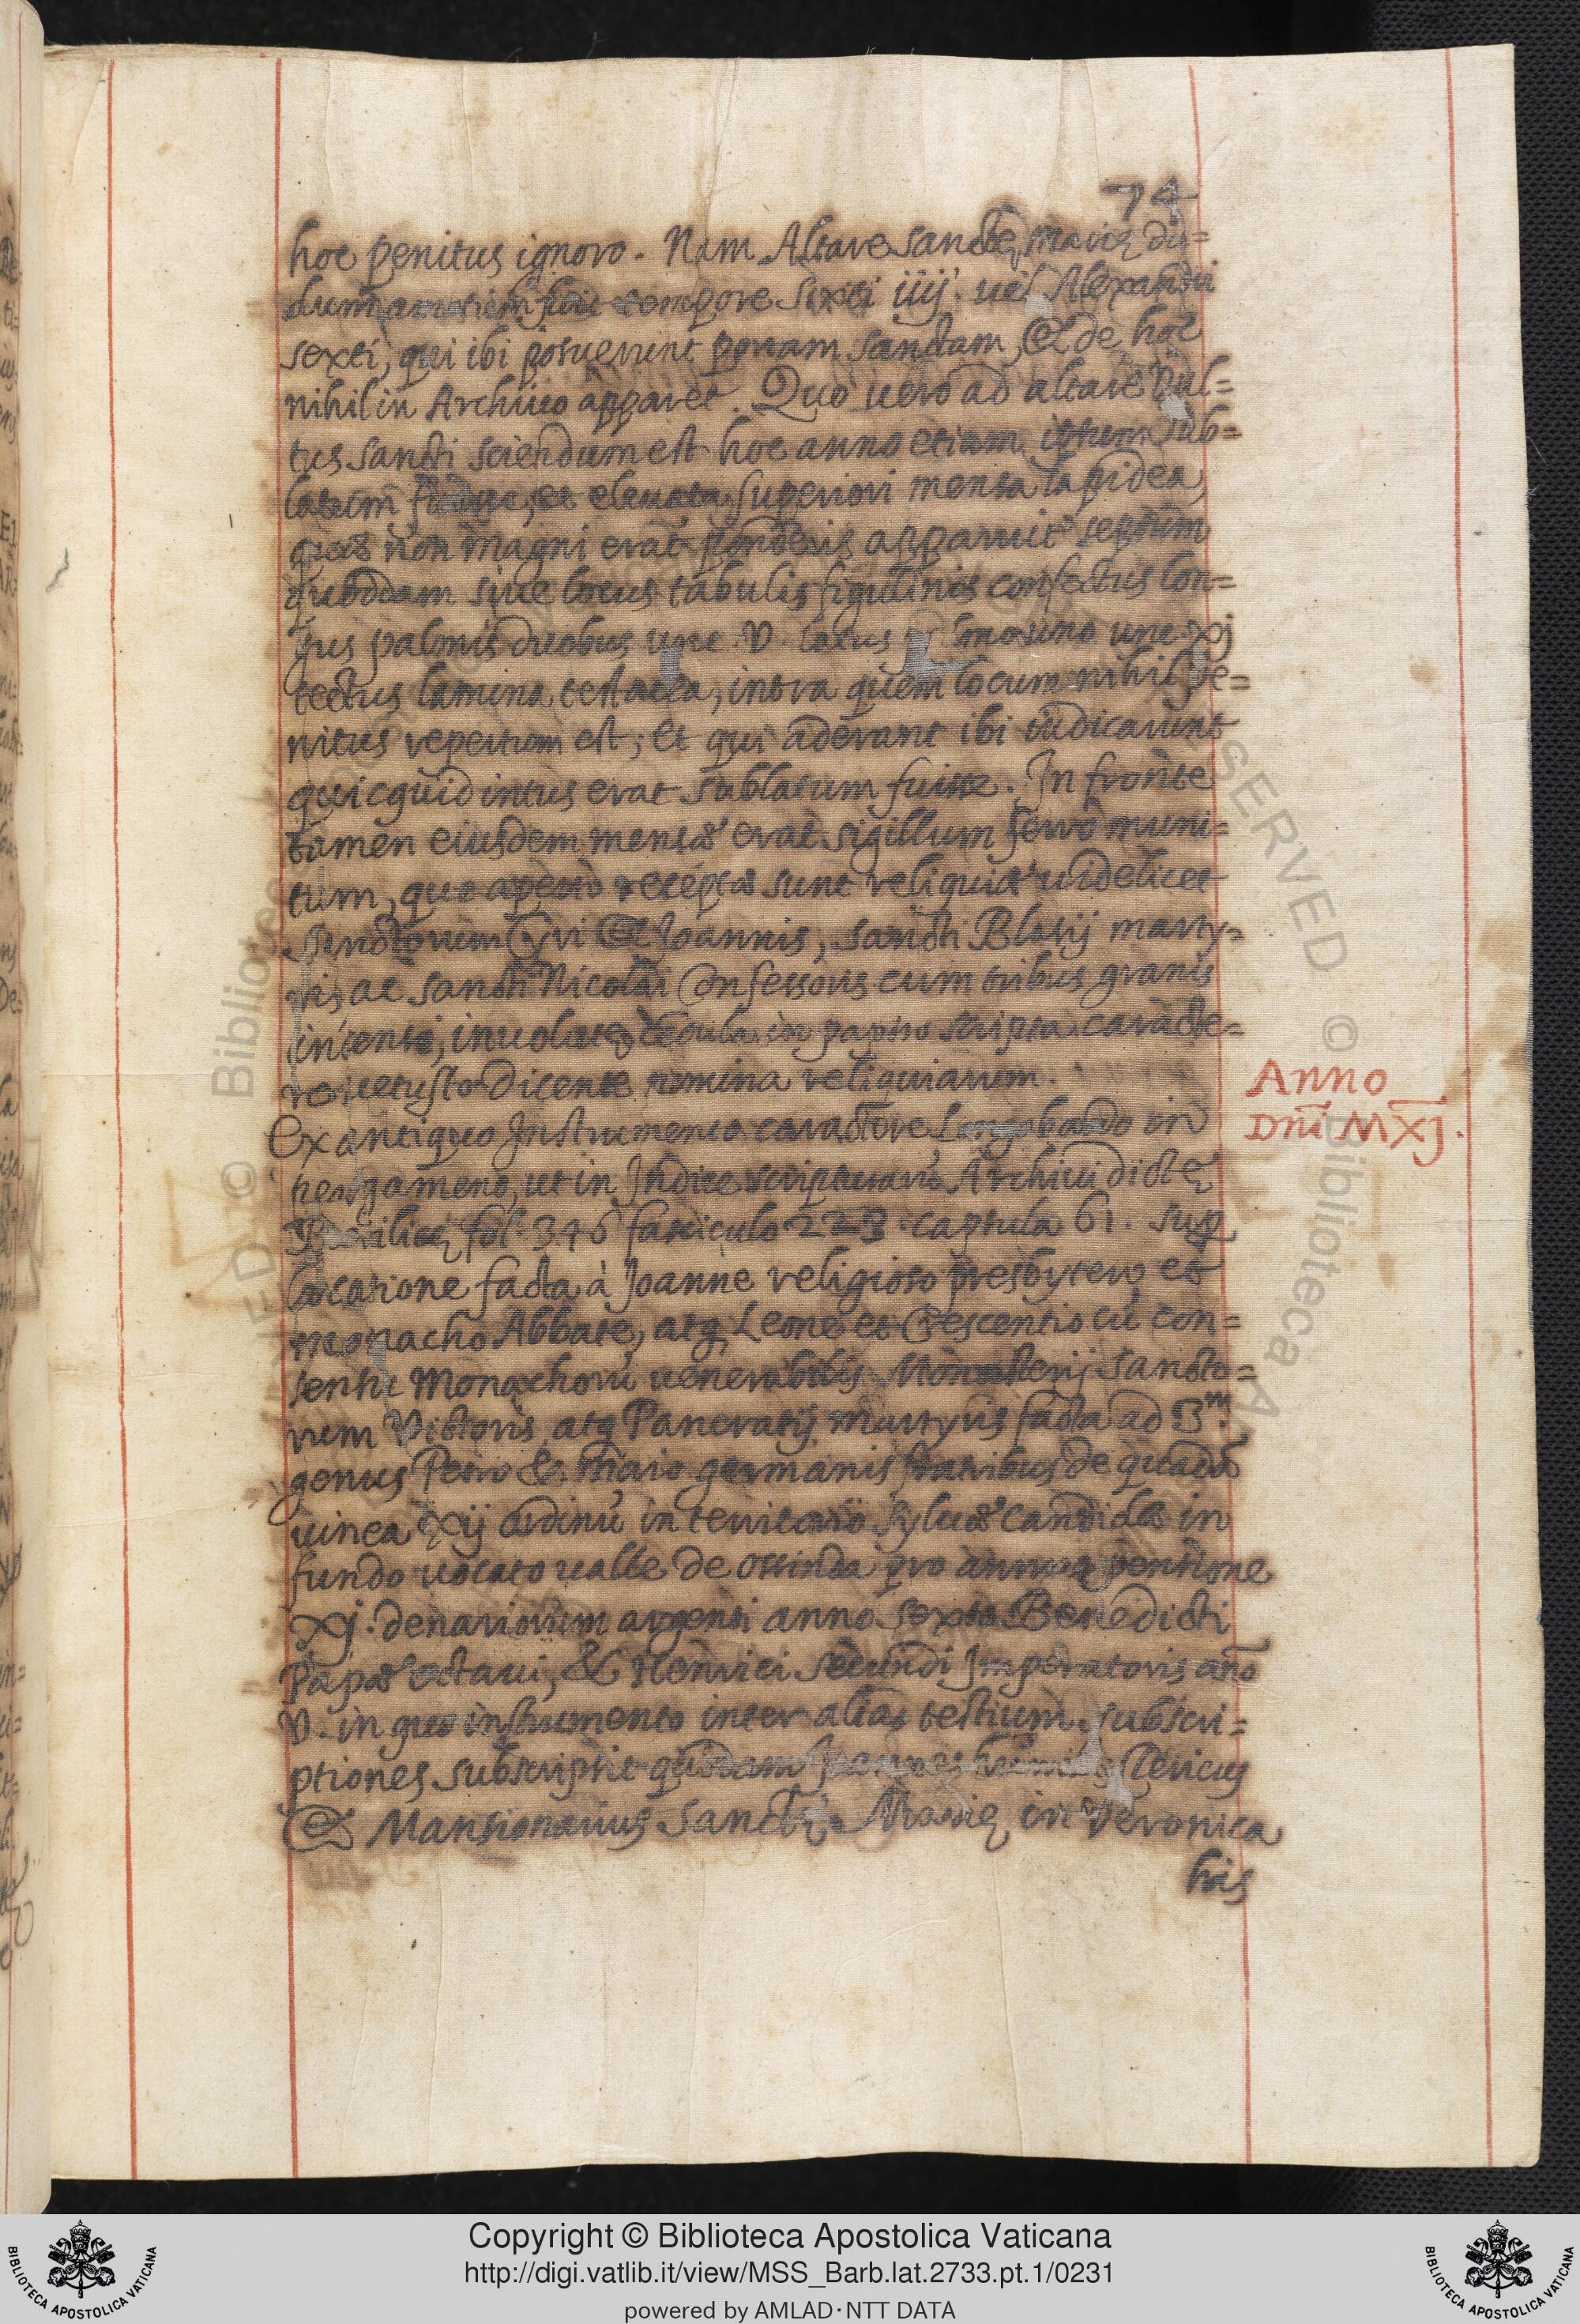 74
hoc penitus ignoro. Nam Altare sanctę Marię du=
dum amotum fuit tempore Sixti iiij. uel Alexandri
sexti, qui ibi posuerunt portam sanctam, Et de hoc
nihil in Archiuo apparet. Quo uero ad altare Vul=
tus sancti sciendum est hoc anno etiam istum sub=
latum fuisse, et eleuata superiori mensa lapidea,
quæ non magni erat ponderis apparuit septum
quoddam siue locus tabulis figulinis confectus lon=
gus palmis duobus unc. V. latus palmo uno unc. xj
tectus lamina testacea, intra quem locum nihil pe=
nitus repertum est; et qui aderant ibi iudicarunt
quicquid intus erat sublatum fuisse. In fronte
tamen eiusdem mensæ erat sigillum ferro muni=
tum, quo aperto receptæ sunt reliquiæ uidelicet
sanctorum Cyri Et Joannis, sancti Blasij marty=
ris, ac sancti Nicolai Confessoris cum tribus granis
incensi, inuolutę cedula in papiro scripta caracte=
re uetusto dicente nomina reliquiarum.
Ex antiquo Instrumento caractere Longobardo in
pergameno, ut in Indice scripturarū Archiui dictę
Basilicę fol. 346 fasciculo 223 capsula 61. sup
locatione facta à Joanne religioso presbytero, et
monacho Abbate, atq Leone et Crescentio cū con=
sensu Monachorū uenerabilis Monasterij sancto=
rum Victoris atq Pancratij martyris facta ad 3m
genus Petro & Maio germanis fratribus de quadā
uinea xij ordinū in territorio Syluæ candidæ in
fundo uocato ualle de pro annua pensione
xj. denariorum argenti anno sexto Benedicti
Papæ octaui, & Henrici secundi Imperatoris año
V. in quo instrumento inter alias testium subscri=
ptiones subscripsit quidam Joannes humilis Clericus
Et Mansionarius Sanctę Marię in Veronica
his
Anno
Dñi MXJ.
Copyright © Biblioteca Apostolica Vaticana
http://digi.vatlib.it/view/MSS_Barb.lat.2733.pt.1/0231
powered by AMLAD·NTT DATA
BIBLIOTECA APOSTOLICA VATICANA
BIBLIOTECA APOSTOLICA VATICANA